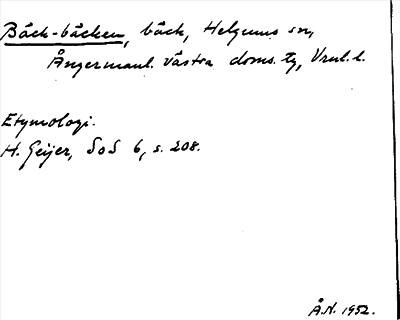 Bäck-bäcken, bäck, Helgums sn,
Ångermanl. västra doms. tg, Vrnl. l.
Etymologi.
H. Geijer, SoS 6, s. 208.
Å.N. 1952.